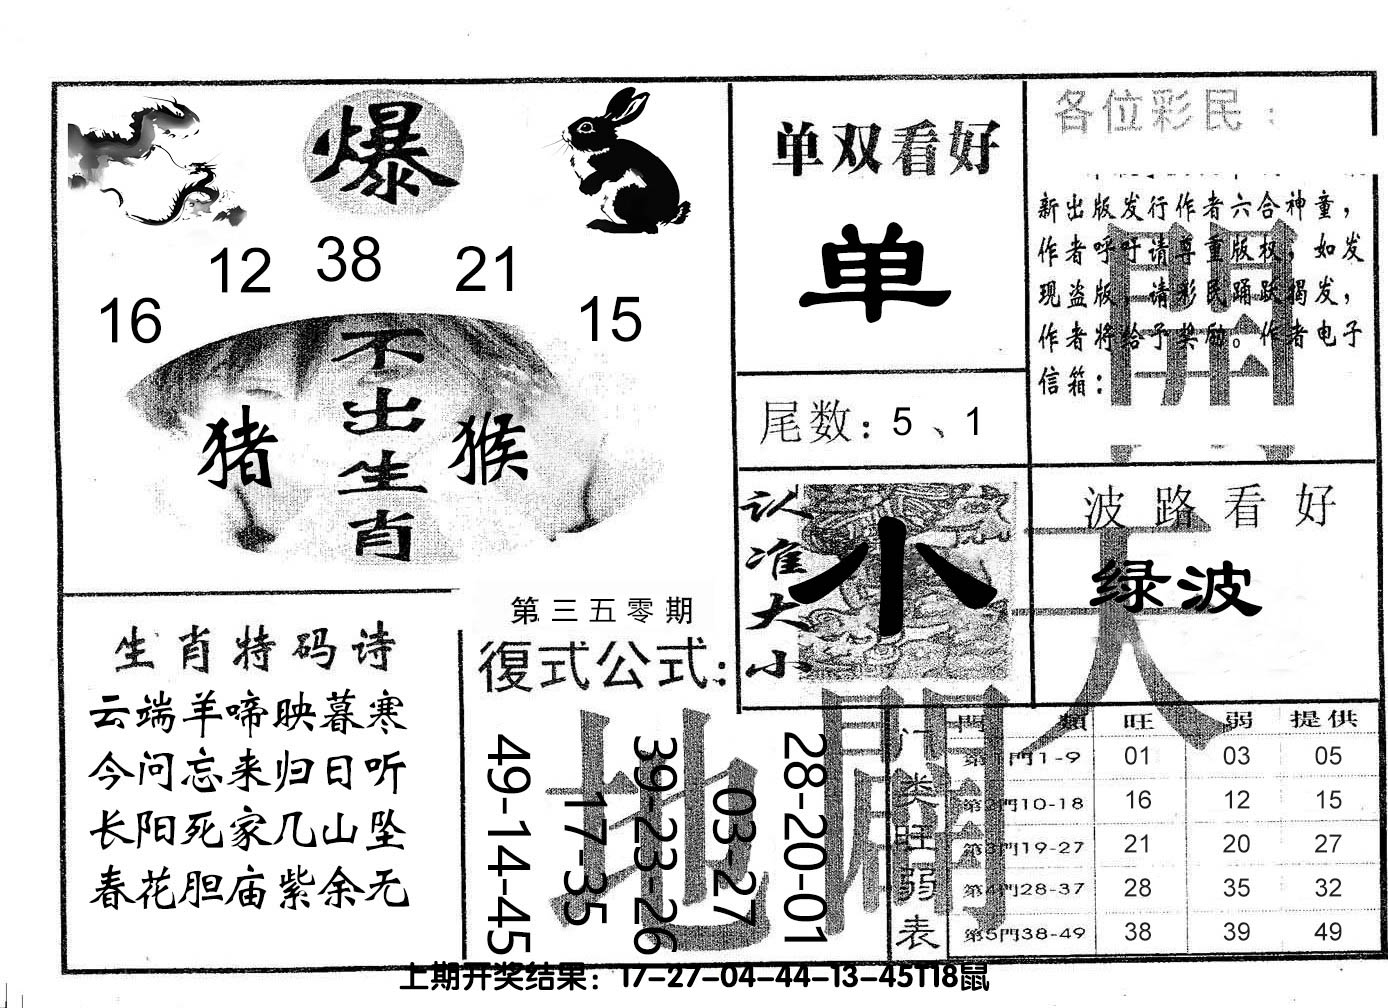 爆
12 38 21
16 15
不出生肖
猪 猴
单双看好
单
尾数：5、1
各位彩民：
新出版发行作者六合神童，
作者呼吁请尊重版权，如发
现盗版，请彩民踊跃揭发，
作者将给予奖励。作者电子
信箱：
認准大小
小
波路看好
绿波
天
開
地
開
生肖特码诗
云端羊啼映暮寒
今问忘来归日听
长阳死家几山坠
春花胆庙紫余无
第三五零期
復式公式：
49-14-45
17-35
39-23-26
03-27
28-20-01
门类旺弱表
門類 旺 弱 提供
第1門1-9 01 03 05
第2門10-18 16 12 15
第3門19-27 21 20 27
第4門28-37 28 35 32
第5門38-49 38 39 49
上期开奖结果：17-27-04-44-13-45T18鼠